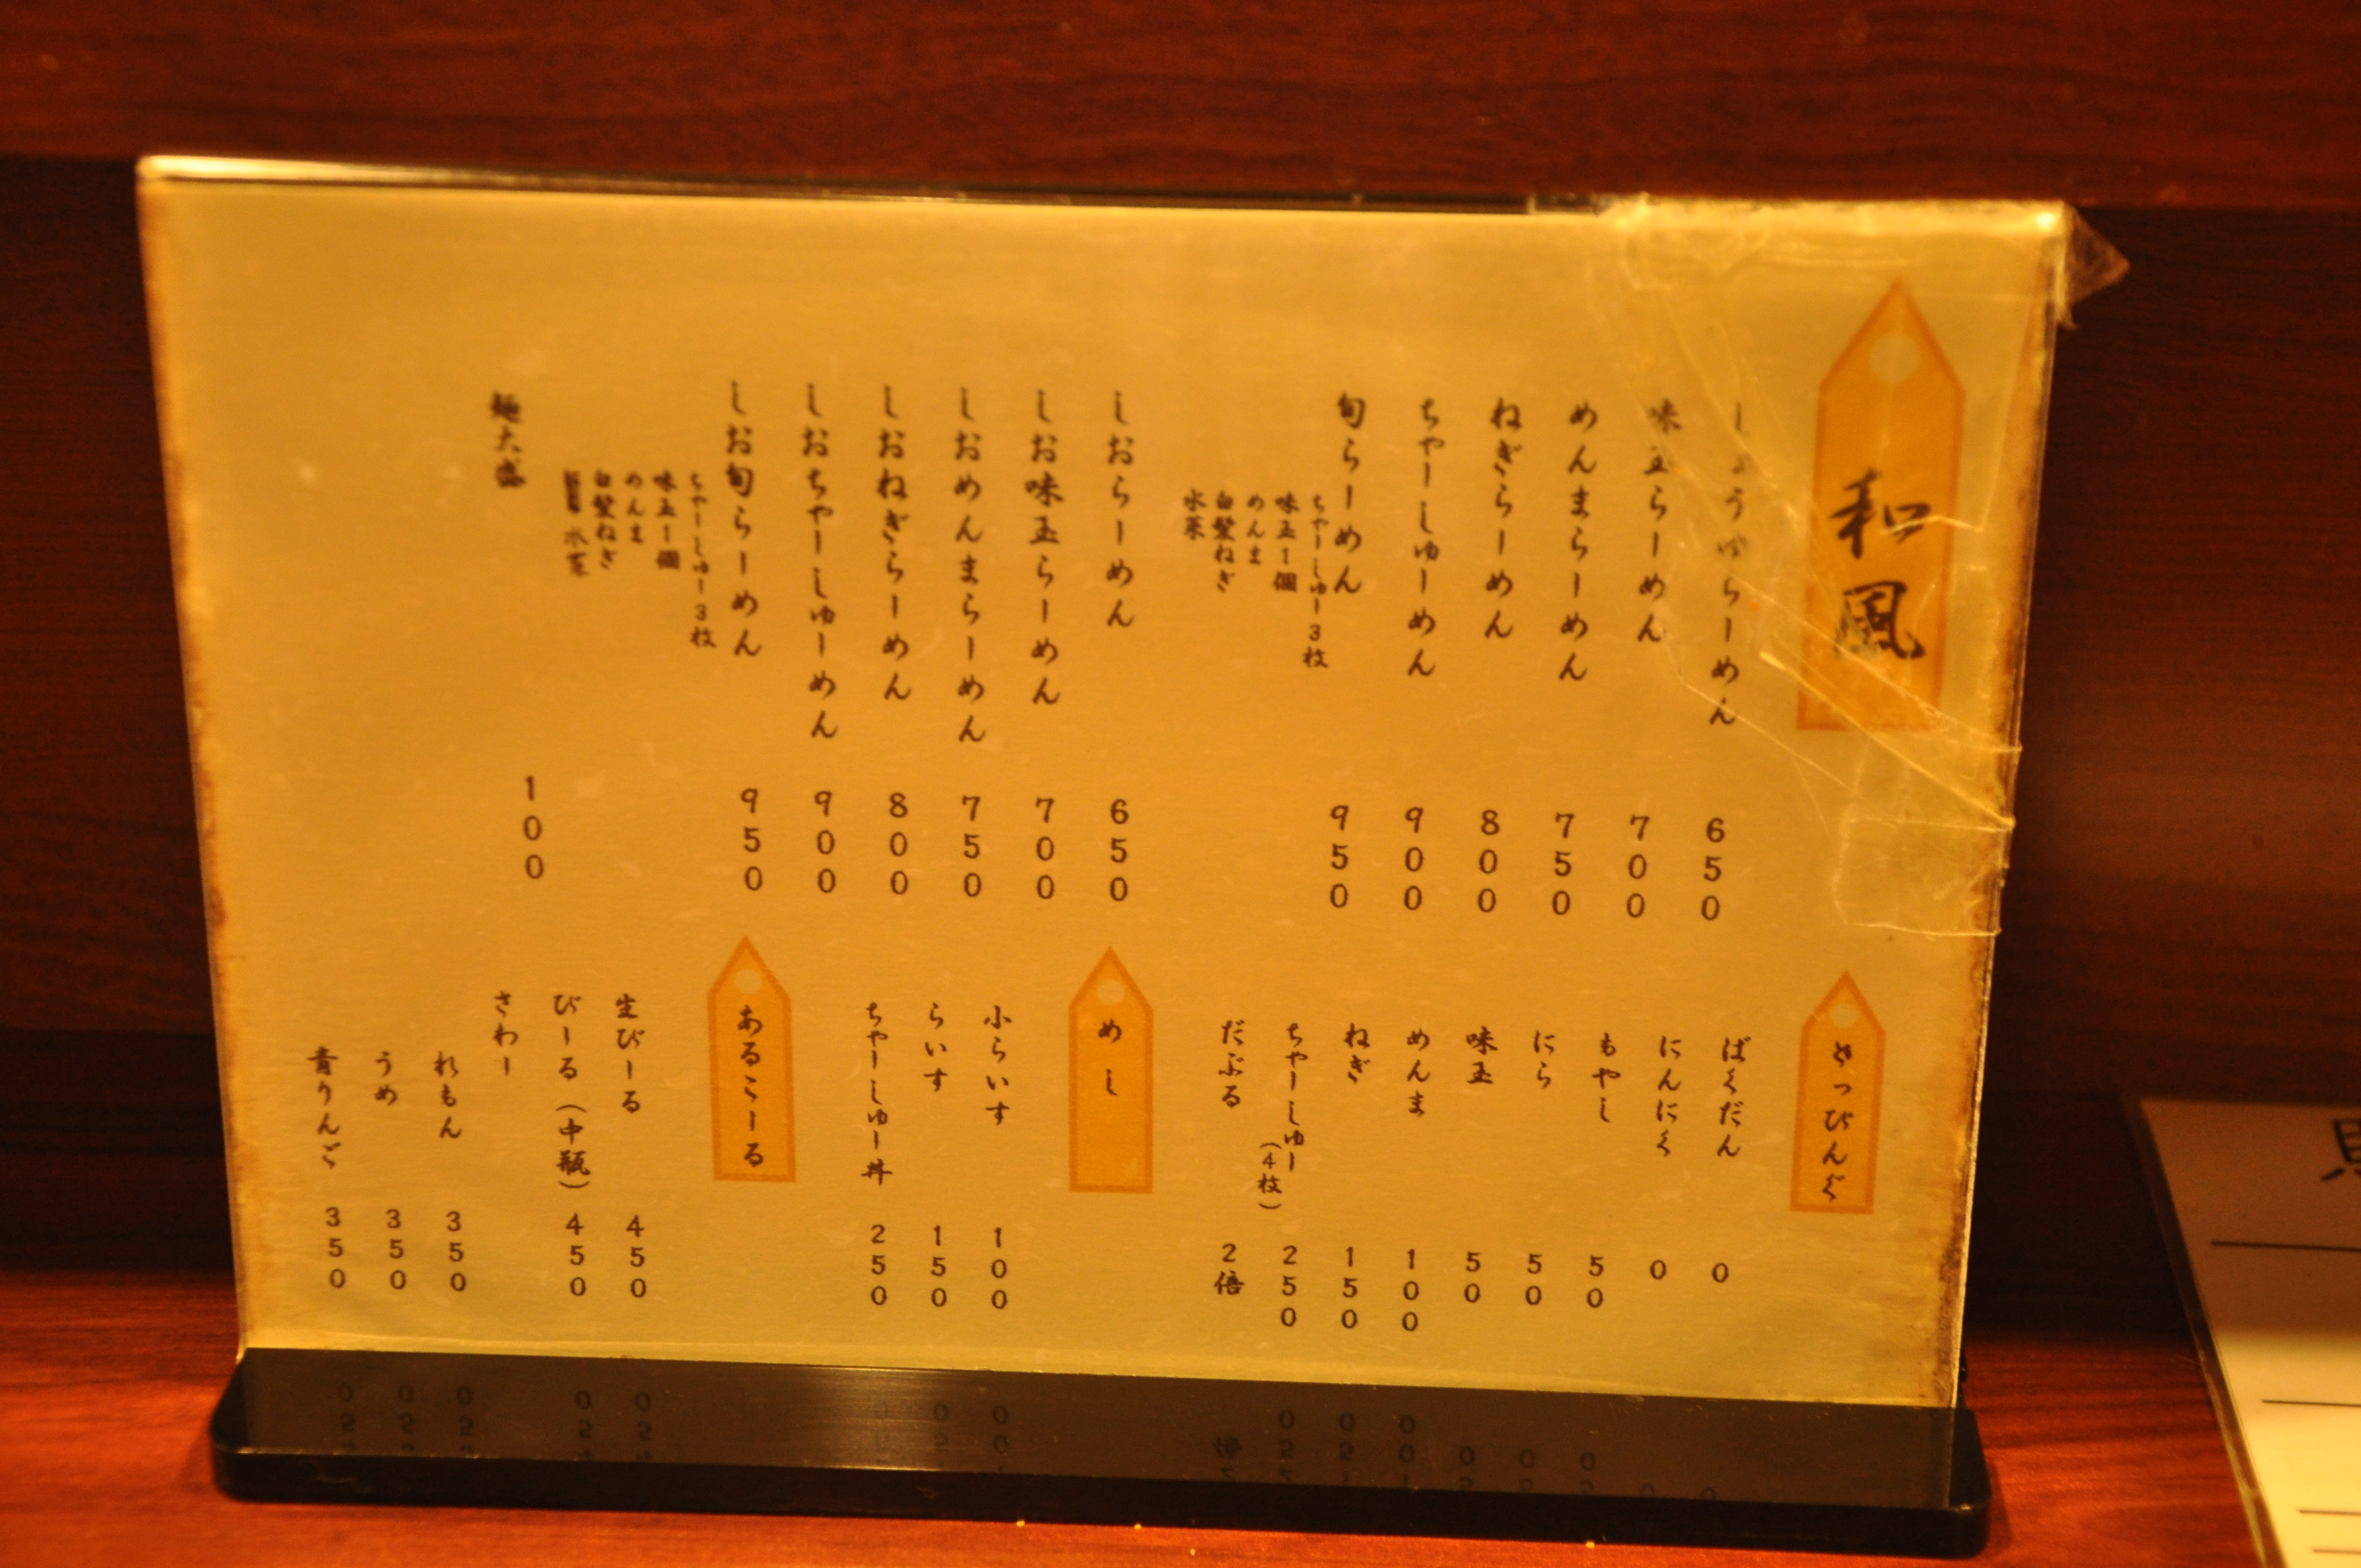 和風
しょうゆらーめん 650
味玉らーめん 700
めんまらーめん 750
ねぎらーめん 800
ちゃーしゅーめん 900
旬らーめん 950
ちゃーしゅー3枚
味玉1個
めんま
白髪ねぎ
水菜
しおらーめん 650
しお味玉らーめん 700
しおめんまらーめん 750
しおねぎらーめん 800
しおちゃーしゅーめん 900
しお旬らーめん 950
ちゃーしゅー3枚
味玉1個
めんま
白髪ねぎ
水菜
麺大盛 100
とっぴんぐ
ばくだん 0
にんにく 0
もやし 50
にら 50
味玉 50
めんま 100
ねぎ 150
ちゃーしゅー(4枚) 250
だぶる 2倍
めし
小らいす 100
らいす 150
ちゃーしゅー丼 250
あるこーる
生びーる 450
びーる(中瓶) 450
さわー
れもん 350
うめ 350
青りんご 350